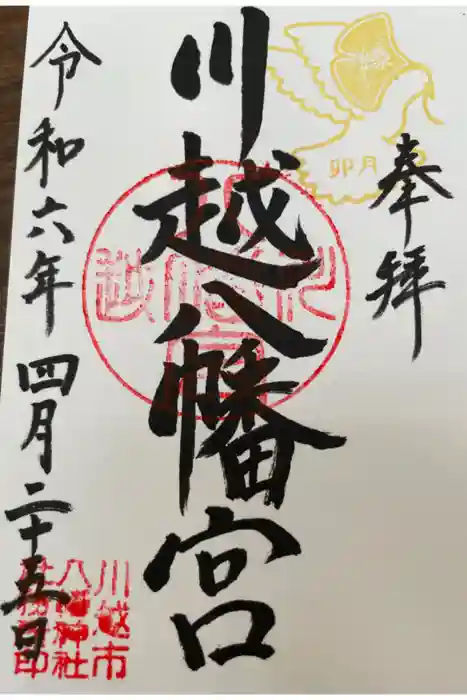 奉拝
卯月
川越八幡宮
令和六年四月二十五日
川越市
八幡神社
社務所印